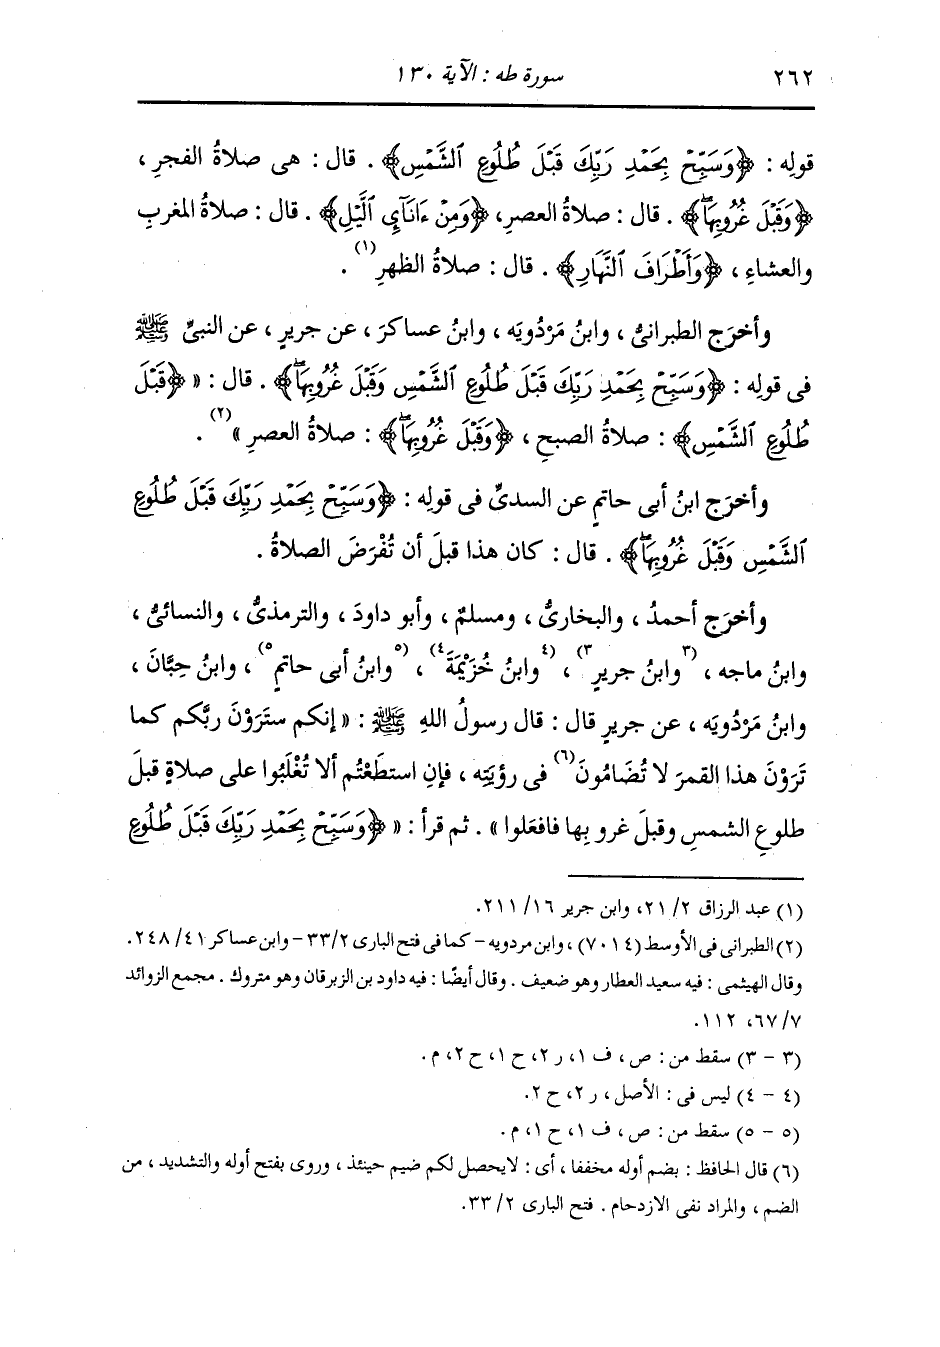 ٢٦٢ سورة طه : الآية ١٣٠
قولِه : ﴿وَسَبِّحْ بِحَمْدِ رَبِّكَ قَبْلَ طُلُوعِ ٱلشَّمْسِ﴾ . قال : هى صلاةُ الفجرِ ،
﴿وَقَبْلَ غُرُوبِهَاۖ﴾ . قال : صلاةُ العصرِ، ﴿وَمِنْ ءَانَآيِٕ ٱلَّيْلِ﴾ . قال : صلاةُ المغربِ
والعشاءِ ، ﴿وَأَطْرَافَ ٱلنَّهَارِ﴾ . قال : صلاةُ الظهرِ(١) .
وأخرَج الطبرانىُّ ، وابنُ مَرْدُويَه ، وابنُ عساكرَ ، عن جريرٍ ، عن النبىِّ ﷺ
فى قولِه : ﴿وَسَبِّحْ بِحَمْدِ رَبِّكَ قَبْلَ طُلُوعِ ٱلشَّمْسِ وَقَبْلَ غُرُوبِهَاۖ﴾ . قال : « ﴿قَبْلَ
طُلُوعِ ٱلشَّمْسِ﴾ : صلاةُ الصبحِ ، ﴿وَقَبْلَ غُرُوبِهَاۖ﴾ : صلاةُ العصرِ »(٢) .
وأخرَج ابنُ أبى حاتمٍ عن السدىِّ فى قولِه : ﴿وَسَبِّحْ بِحَمْدِ رَبِّكَ قَبْلَ طُلُوعِ
ٱلشَّمْسِ وَقَبْلَ غُرُوبِهَاۖ﴾ . قال : كان هذا قبلَ أن تُفْرَضَ الصلاةُ .
وأخرَج أحمدُ ، والبخارىُّ ، ومسلمٌ ، وأبو داودَ ، والترمذىُّ ، والنسائىُّ ،
وابنُ ماجه ، (٣وابنُ جريرٍ٣) ، (٤وابنُ خُزَيْمَةَ٤) ، (٥وابنُ أبى حاتمٍ٥) ، وابنُ حِبَّانَ ،
وابنُ مَرْدُويَه ، عن جريرٍ قال : قال رسولُ اللهِ ﷺ : « إنكم سترَوْنَ ربَّكم كما
تَرَوْنَ هذا القمرَ لا تُضَامُونَ(٦) فى رؤيَتِه ، فإنِ استطَعْتُم ألا تُغْلَبُوا على صلاةٍ قبلَ
طلوعِ الشمسِ وقبلَ غروبِها فافعَلوا » . ثم قرأ : « ﴿وَسَبِّحْ بِحَمْدِ رَبِّكَ قَبْلَ طُلُوعِ
(١) عبد الرزاق ٢/ ٢١، وابن جرير ١٦/ ٢١١.
(٢) الطبرانى فى الأوسط (٧٠١٤) ، وابن مردويه - كما فى فتح البارى ٢/ ٣٣ - وابن عساكر ٤١/ ٢٤٨.
وقال الهيثمى : فيه سعيد العطار وهو ضعيف . وقال أيضًا : فيه داود بن الزبرقان وهو متروك . مجمع الزوائد
٧/ ٦٧، ١١٢.
(٣ - ٣) سقط من : ص ، ف ١، ر ٢، ح ١، ح ٢، م .
(٤ - ٤) ليس فى : الأصل ، ر ٢، ح ٢.
(٥ - ٥) سقط من : ص ، ف ١، ح ١، م .
(٦) قال الحافظ : بضم أوله مخففا ، أى : لا يحصل لكم ضيم حينئذ ، وروى بفتح أوله والتشديد ، من
الضم ، والمراد نفى الازدحام . فتح البارى ٢/ ٣٣.